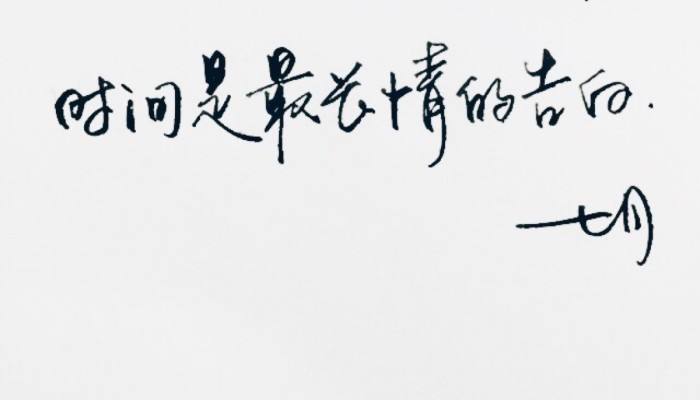 时间是最长情的告白.
一七月